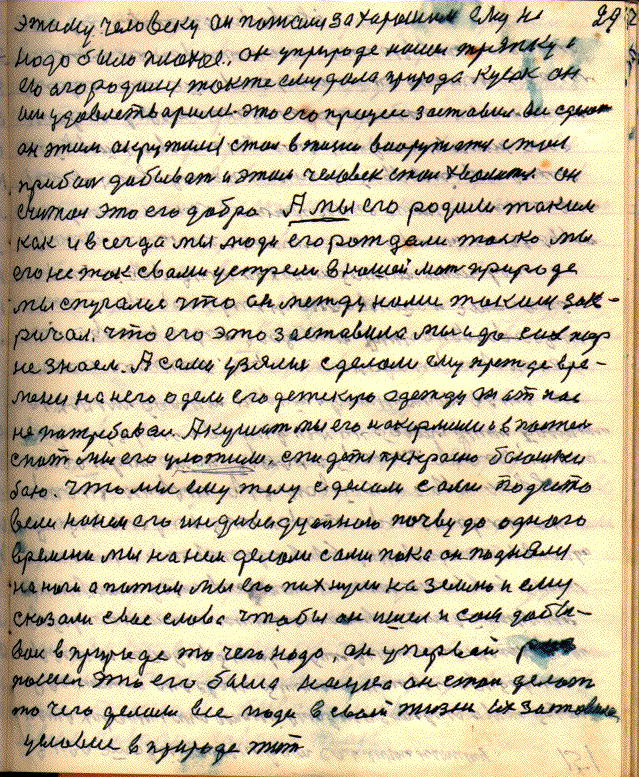 29
этому человеку он попал за харошим ему не
надо было плохое, он у природе нашел тряпку и
его огородили также ему дала природа кусок он
им удовлетварили. это его прицеп заставил
он этим окружили стал в жизни вооружатся стал
прибыл добыват и этим человек стал хвалится он
считал это его добро А мы его родили таким
как и всегда мы люди его рождали только мы
его не так с вами устрели в нашей мат природе
мы спугалис что он между нами таким зак-
ричал. что его это заставила мы и до сих пор
не знаем. А сами узяли сделали ему прежде вре-
мени на него одели его детскую одежду
не патребавал А кушат мы его накормили и в постел
спат мы его уложили, спи дитя прекрасно баюшки
баю. что мы ему телу сделали сами подгото
вели на нем его индивидуалную почву до одного
времени мы на нем делали сами пока он подняли
на ноги а потом мы его пихнули на землю и ему
сказали свае слова чтобы он шел и сам добы-
вал в природе то чего надо, он у первый раз
пошел это его была наука он стал делат
то чего делали все люди в своей жизни их заставила
условие в природе жит